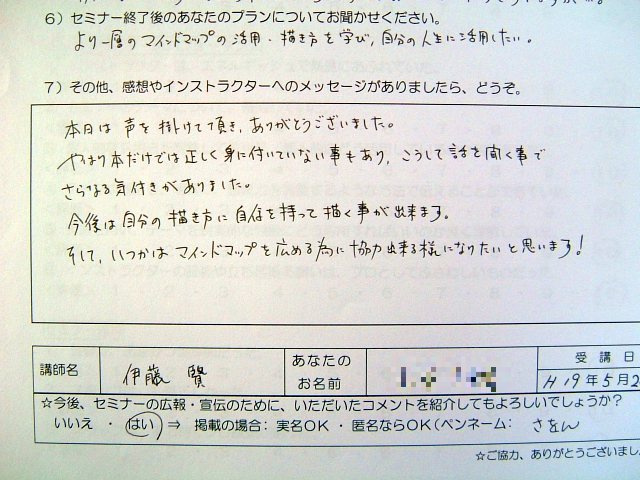 6）セミナー終了後のあなたのプランについてお聞かせください。
より一層のマインドマップの活用・描き方を学び、自分の人生に活用したい。
7）その他、感想やインストラクターへのメッセージがありましたら、どうぞ。
本日は声を掛けて頂き、ありがとうございました。
やはり本だけでは正しく身に付いていない事もあり、こうして話を聞く事で
さらなる気付きがありました。
今後は自分の描き方に自信を持って描く事が出来ます。
そして、いつかはマインドマップを広める為に協力出来る様になりたいと思います!
講師名 伊藤 賢 あなたのお名前 受講日
H19年5月2
☆今後、セミナーの広報・宣伝のために、いただいたコメントを紹介してもよろしいでしょうか？
いいえ ・ はい ⇒ 掲載の場合: 実名OK ・ 匿名ならOK（ペンネーム: さをん
☆ご協力、ありがとうございまし